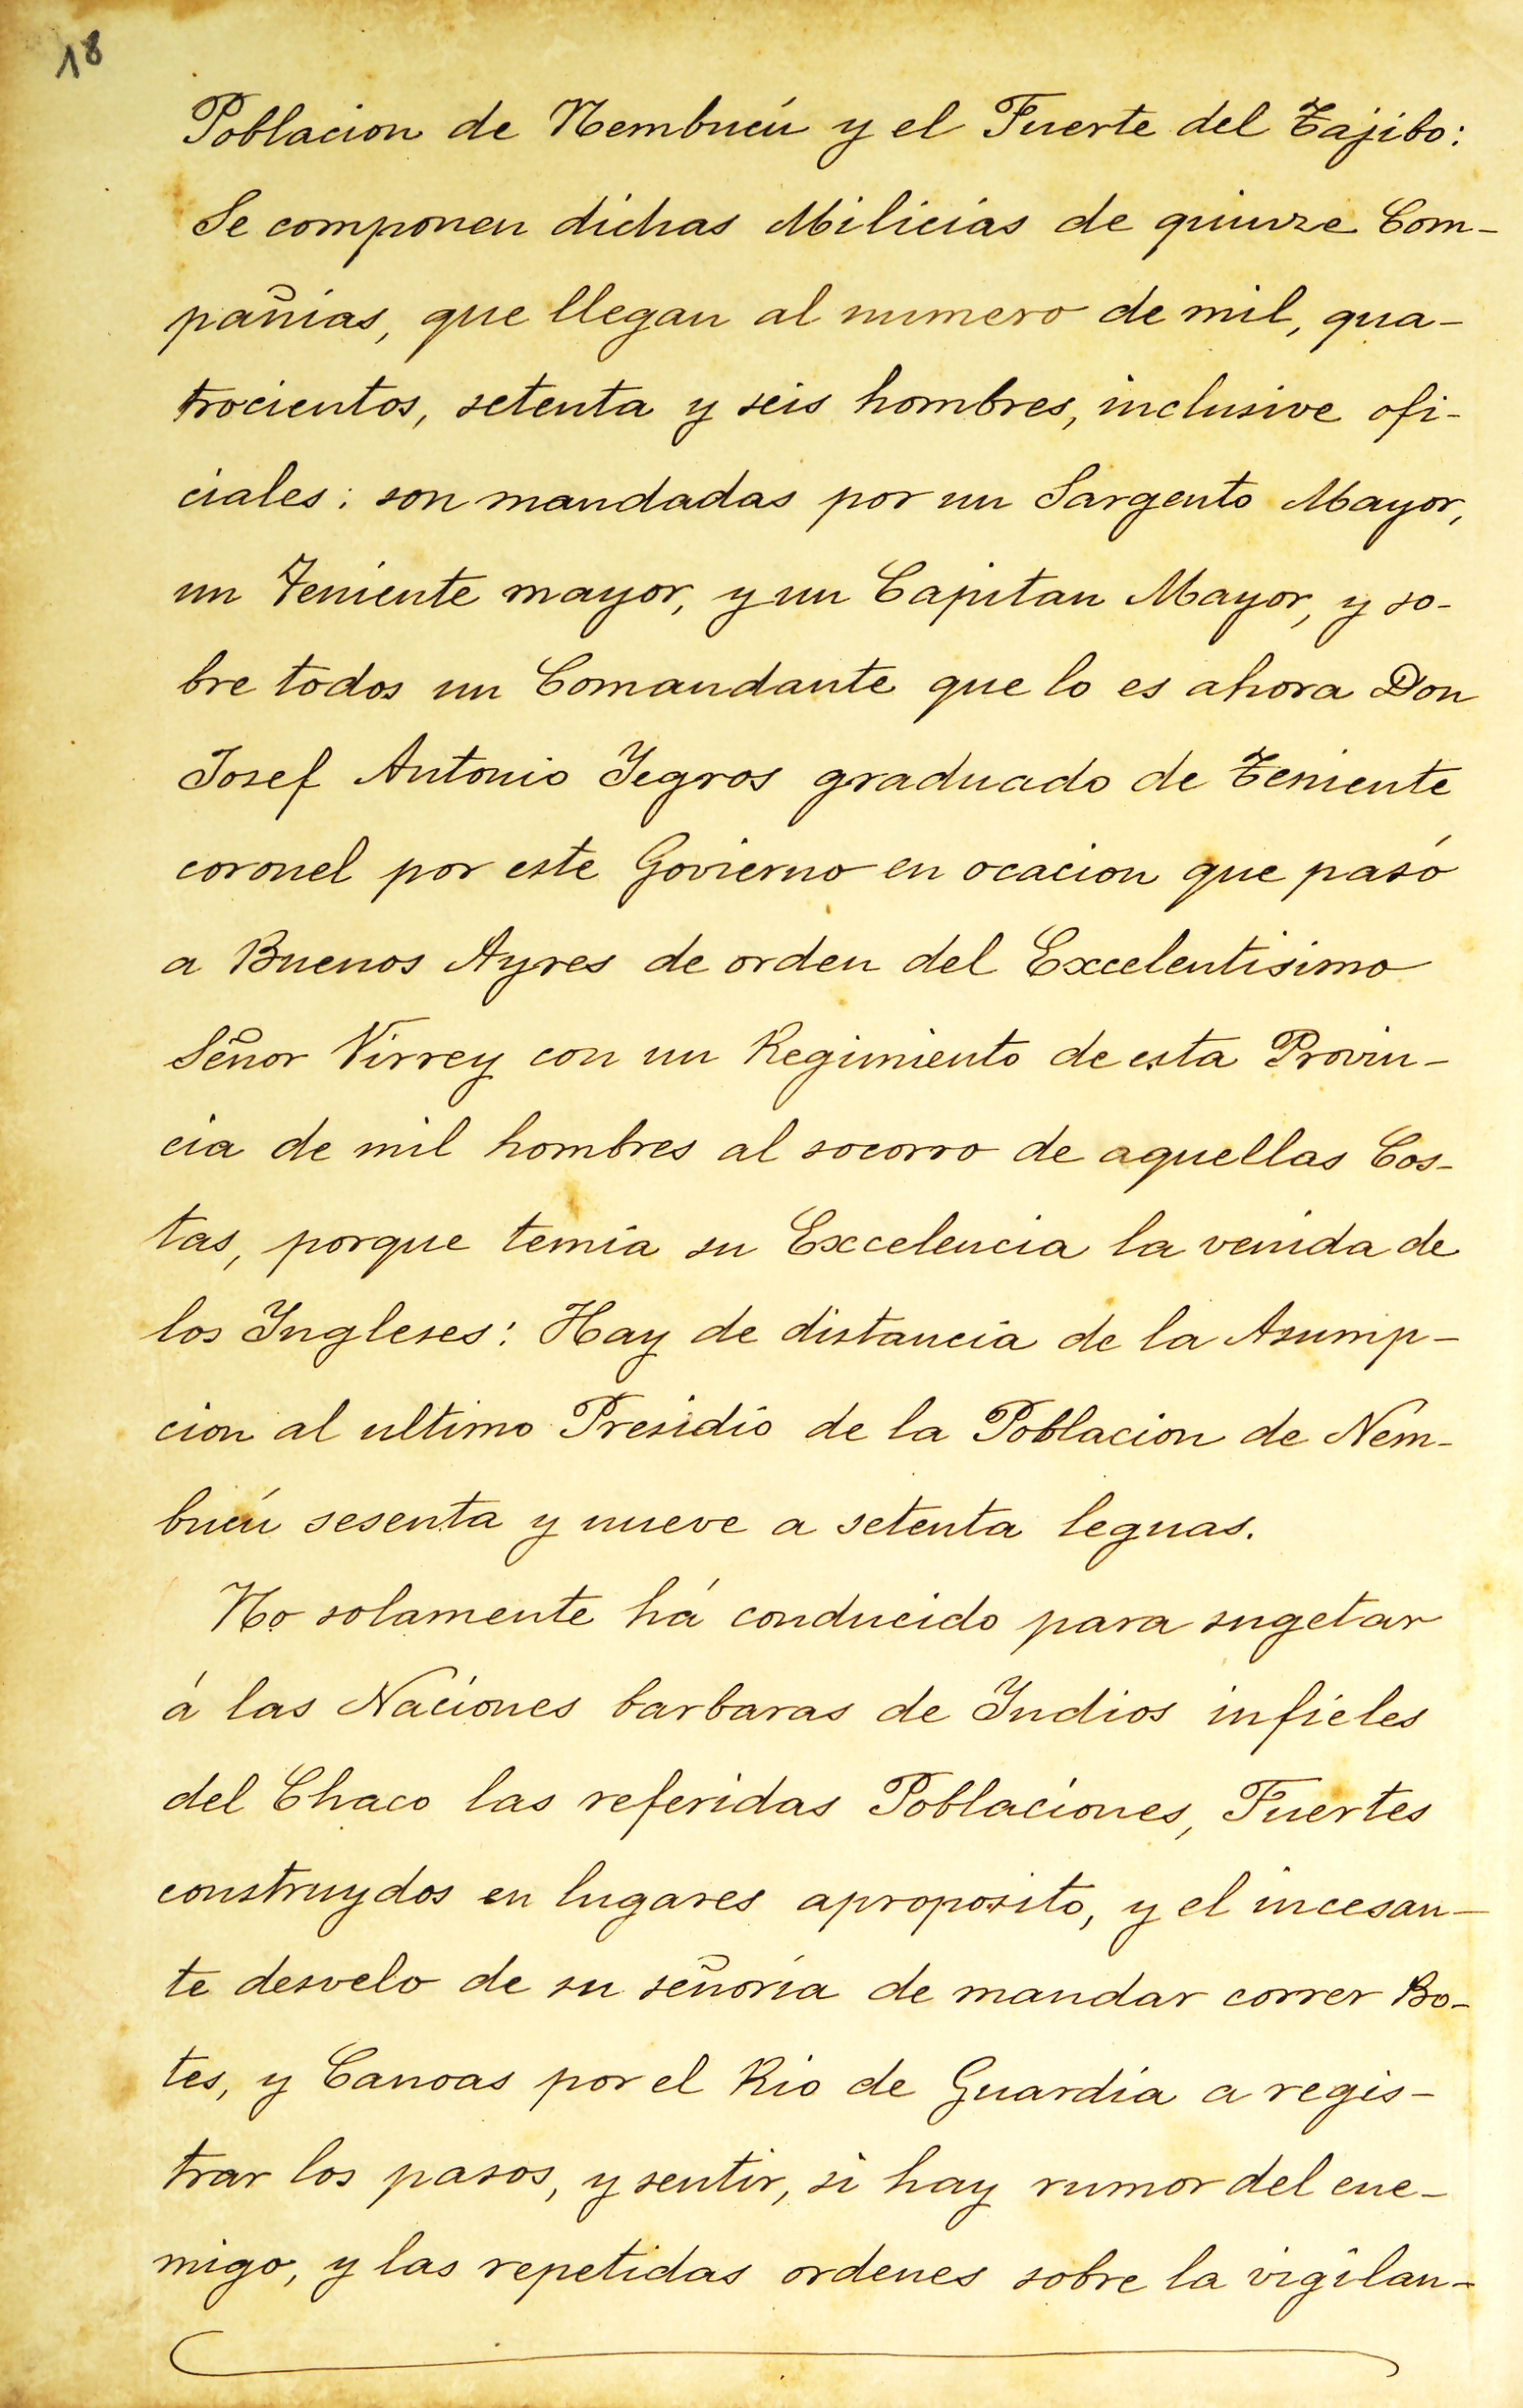 18
Poblacion de Nembucú y el Fuerte del Tajibo:
Se componen dichas Milicias de quinze Com-
pañias, que llegan al numero de mil, qua-
trocientos, setenta y seis hombres, inclusive ofi-
ciales: son mandadas por un Sargento Mayor,
un Teniente mayor, y un Capitan Mayor, y so-
bre todos un Comandante que lo es ahora Don
Josef Antonio Yegros graduado de Teniente
coronel por este Govierno en ocacion que pasó
a Buenos Ayres de orden del Excelentisimo
Señor Virrey con un Regimiento de esta Provin-
cia de mil hombres al socorro de aquellas Cos-
tas, porque temia su Excelencia la venida de
los Yngleses: Hay de distancia de la Asump-
cion al ultimo Presidio de la Poblacion de Nem-
bucú sesenta y nueve a setenta leguas.
No solamente há conducido para sugetar
á las Naciones barbaras de Yndios infieles
del Chaco las referidas Poblaciones, Fuertes
construydos en lugares aproposito, y el incesan-
te desvelo de su señoria de mandar correr Bo-
tes, y Canoas por el Rio de Guardia a regis-
trar los pasos, y sentir, si hay rumor del ene-
migo, y las repetidas ordenes sobre la vigilan-